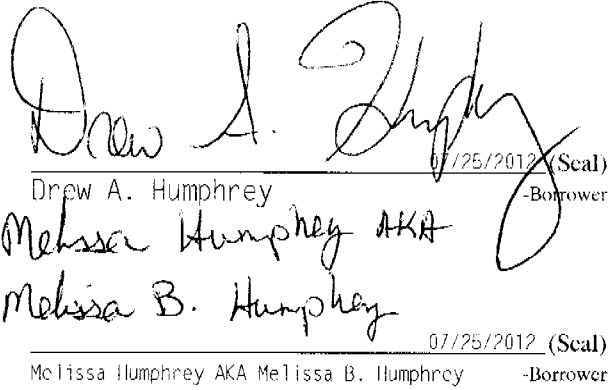 Drew A. Humphrey
07/25/2012 (Seal)
Drew A. Humphrey -Borrower
Melissa Humphrey AKA
Melissa B. Humphrey
07/25/2012 (Seal)
Melissa Humphrey AKA Melissa B. Humphrey -Borrower